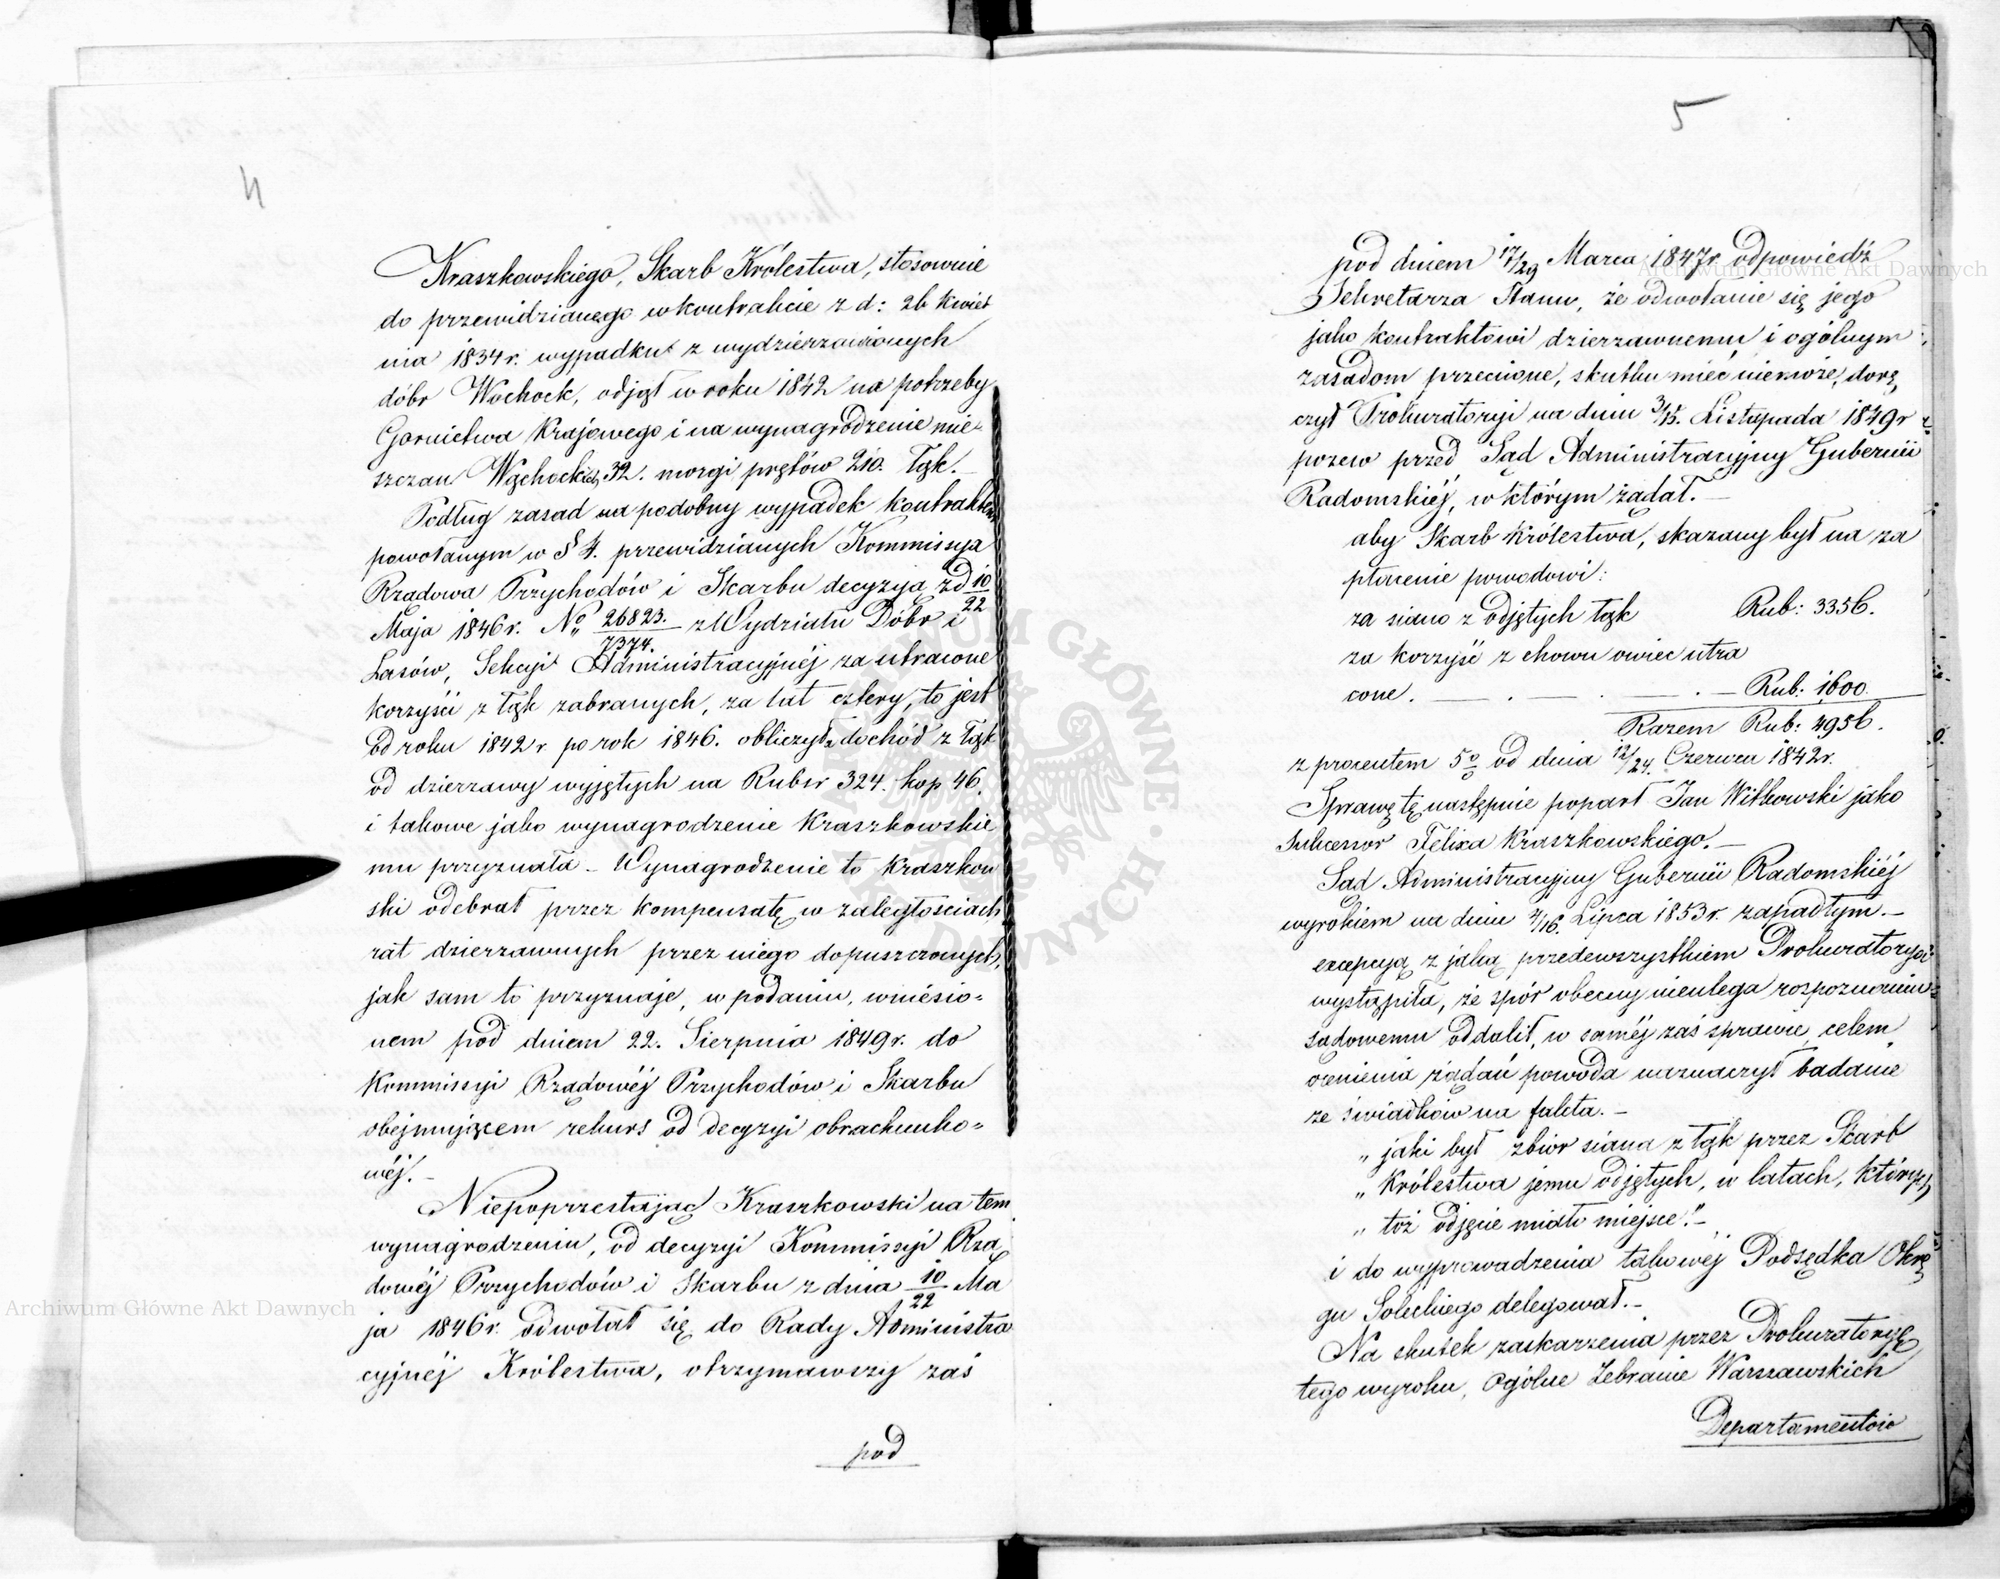 4
Kraszkowskiego, Skarb Królestwa, stosownie
do przewidzianego w kontrakcie z d: 26 Kwiet
nia 1834 r. wypadku z wydzierzawionych
dóbr Wąchock, odjął w roku 1842 na potrzeby
Gornictwa Krajowego i na wynagrodzenie mie-
szczan Wąchockich 32. morgi prętów 210. łąk.
Podług zasad na podobny wypadek kontraktem
powołanym w § 4. przewidzianych Kommissya
Rządowa Przychodów i Skarbu decyzyją z d 10/22
Maja 1846 r. No 26823./7374. z Wydziału Dóbr i
Lasów, Sekcyi Administracyjnéj za utracone
korzyści z łąk zabranych, za lat cztery, to jest
od roku 1842 r. po rok 1846. obliczyła dochód z łąk
od dzierzawy wyjętych na Rubsr 324. kop 46,
i takowe jako wynagrodzenie Kraszkowskie
mu przyznała - Wynagrodzenie to Kraszkow
ski odebrał przez kompensatę w zaległościach
rat dzierzawnych przez niego dopuszczonych,
jak sam to przyznaje, w podaniu, wniesio=
nem pod dniem 22. Sierpnia 1849 r. do
Kommissyi Rządowéj Przychodów i Skarbu
obejmującem rekurs od decyzyi obrachunko=
wéj.-
Niepoprzestając Kraszkowski na tem
wynagrodzeniu, od decyzyi Kommissyi Rzą
dowéj Przychodów i Skarbu z dnia 10/22 Ma
ja 1846 r. odwołał się do Rady Administra
cyjnéj Królestwa, otrzymawszy zaś
pod
5
pod dniem 17/29 Marca 1847 r. odpowiedź
Sekretarza Stanu, że odwołanie się jego
jako kontraktowi dzierzawnemu i ogólnym
zasadom przeciwne, skutku mieć niemoże, dorę
czył Prokuratoryi na dniu 3/15. Listopada 1849 r
pozew przed Sąd Administracyjny Gubernii
Radomskiéj, w którym żądał.-
aby Skarb Królestwa, skazany był na za
płacenie powodowi:
za siano z odjętych łąk Rub: 3356.
za korzyść z chowu owiec utra
cone. - . - . - . - Rub: 1600.
Razem Rub: 4956.
z procentem 5% od dnia 12/24. Czerwca 1842 r.
Sprawę tę następnie popart Jan Witkowski jako
Sukcessor Felixa Kraszkowskiego.-
Sąd Administracyjny Gubernii Radomskiéj
wyrokiem na dniu 4/16. Lipca 1853 r. zapadłym.-
excepcyą z jaką przedewszystkiem Prokuratorya
wystąpiła, że spór obecny nieulega rozpoznaniu
sądowemu oddalił, w saméj zaś sprawie, celem
ocenienia żądań powoda naznaczył badanie
ze świadków na fakta.-
„ jaki był zbior siana z łąk przez Skarb
„ Królestwa jemu odjętych, w latach, których
„ toż odjęcie miało miejsce."-
i do wyprowadzenia takowéj Podsędka Okrę
gu Soleckiego delegował.-
Na skutek zaskarzenia przez Prokuratoryę
tego wyroku, Ogólne Zebranie Warszawskich
Departamentów
Archiwum Główne Akt Dawnych
Archiwum Główne Akt Dawnych
ARCHIWUM GŁÓWNE AKT DAWNYCH